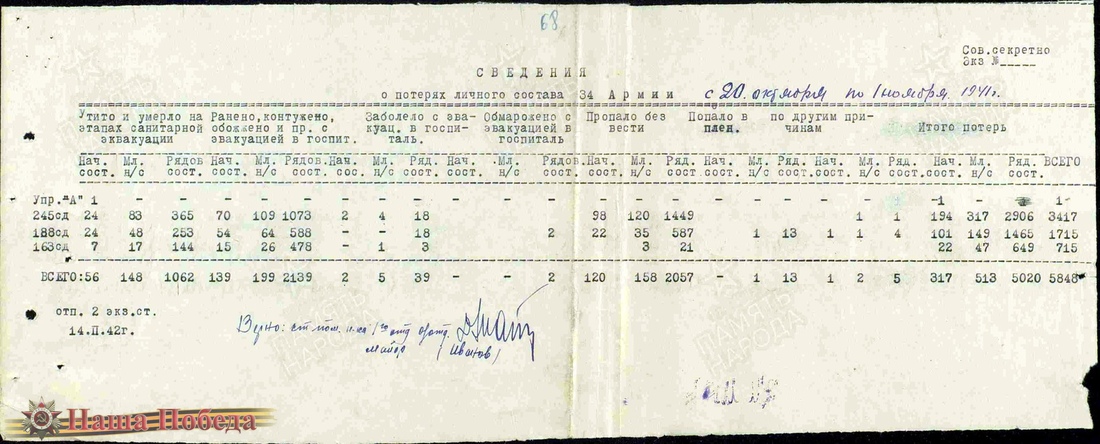 68
Сов.секретно
Экз №_____
СВЕДЕНИЯ
о потерях личного состава 34 Армии с 20 октября по 1 ноября 1941г.
Утито и умерло на этапах санитарной эквакуации Ранено,контужено, обожжено и пр. с эвакуацией в госпит. Заболело с эвакуац. в госпиталь. Обмарожено с эвакуацией в госпиталь Пропало без вести Попало в плен. по другим причинам Итого потерь
Нач. сост. Мл. н/с Рядов сост. Нач. сост. Мл. н/с Рядов. сост. Нач. сос. Мл. н/с Ряд. сост. Нач. сост. Мл. н/с Рядов сост. Нач. сост. Мл. н/с Ряд. сост. Нач. сост. Мл. н/с Ряд. сост. Нач. сост. Мл. н/с Ряд. сост. Нач. сост. Мл. н/с Ряд. сост. ВСЕГО
Упр."А" 1 - - - - - - - - - - - - - - 1 - 1-
245сд 24 83 365 70 109 1073 2 4 18 98 120 1449 1 1 194 317 2906 3417
188сд 24 48 253 54 64 588 - - 18 2 22 35 587 1 13 1 1 4 101 149 1465 1715
163сд 7 17 144 15 26 478 - 1 3 3 21 22 47 649 715
ВСЕГО:56 148 1062 139 199 2139 2 5 39 - - 2 120 158 2057 - 1 13 1 2 5 317 513 5020 5848
отп. 2 экз.ст.
14.II.42г.
Верно: ст пом. н-ка 1го отд
майор (Иванов)
Наша Победа